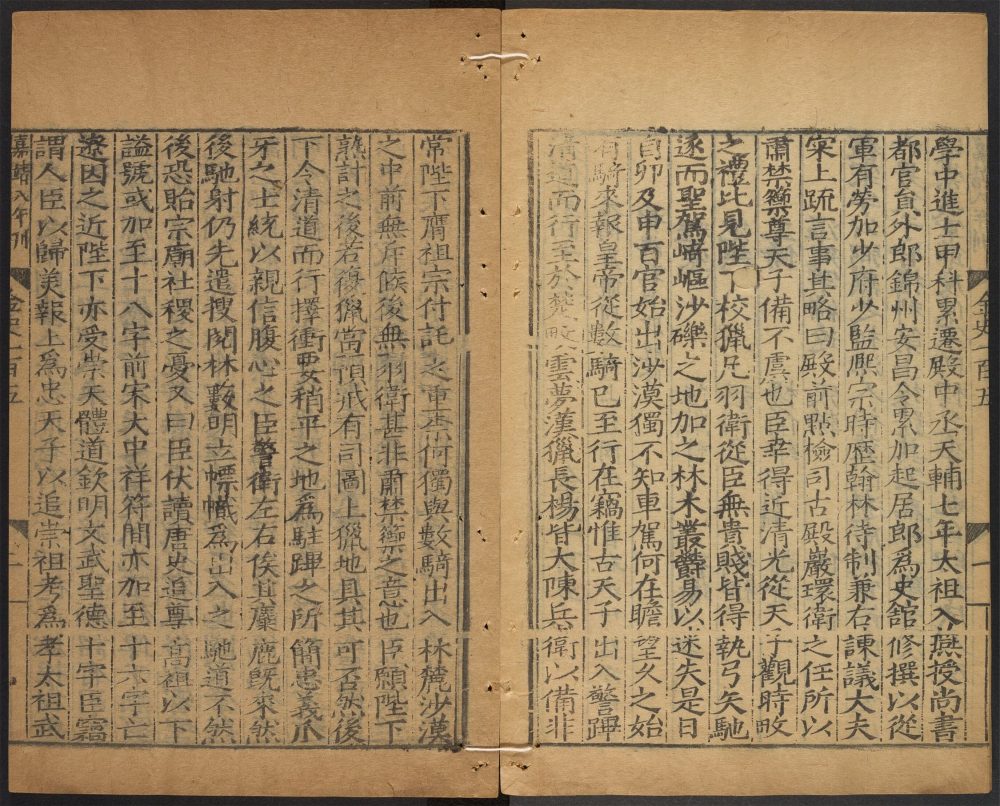 學中進士甲科累遷殿中丞天輔七年太祖入燕授尚書
都官員外郎錦州安昌令累加起居郎爲史館修撰以從
軍有勞加少府少監熙宗時歷翰林待制兼右諫議大夫
宷上疏言事其略曰殿前點檢司古殿巖環衛之任所以
肅禁籞尊天子備不虞也臣幸得近清光從天子觀時畋
之禮比見陛下校獵凡羽衛從臣無貴賤皆得執弓矢馳
逐而聖駕崎嶇沙礫之地加之林木叢鬱易以迷失是日
自卯及申百官始出沙漠獨不知車駕何在瞻望久之始
有騎來報皇帝從數騎已至行在竊惟古天子出入警蹕
清道而行至於楚畋雲夢漢獵長楊皆大陳兵衛以備非
金史一百五
常陛下膺祖宗付託之重奈何獨與數騎出入林麓沙漠
之中前無斥候後無羽衛甚非肅禁籞之意也臣願陛下
熟計之後若復獵當預戒有司圖上獵地具其可否然後
下令清道而行擇衝要稍平之地爲駐蹕之所簡忠義爪
牙之士統以親信腹心之臣警衛左右俟其麋鹿既來然
後馳射仍先遣搜閱林藪明立幖幟爲出入之馳道不然
後恐貽宗廟社稷之憂又曰臣伏讀唐史追尊高祖以下
謚號或加至十八字前宋大中祥符間亦加至十六字亡
遼因之近陛下亦受崇天體道欽明文武聖德十字臣竊
謂人臣以歸美報上爲忠天子以追崇祖考爲孝太祖武
嘉靖八年刊
金史一百五